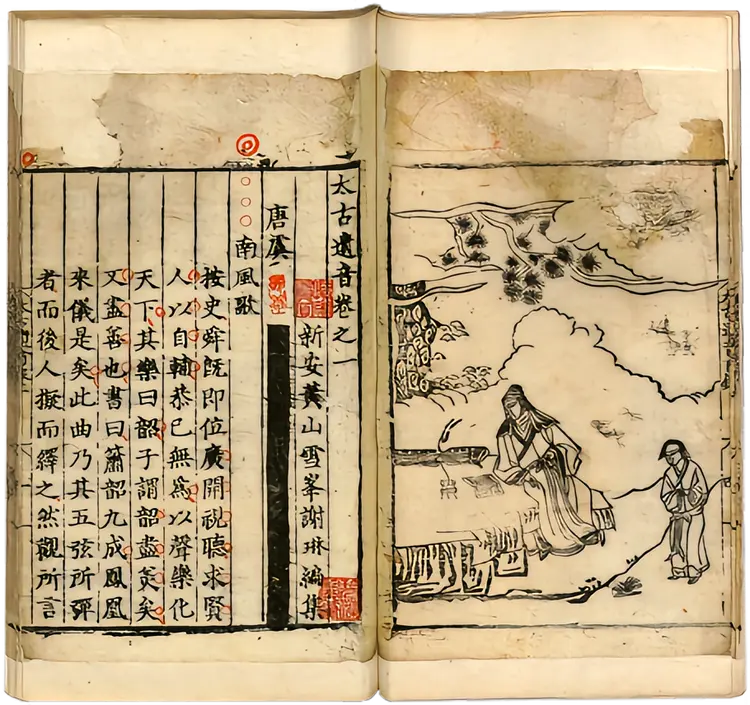 太古遺音卷之一
新安黃山雪峯謝琳編集
唐虞
南風歌
按史舜既即位廣開視聽求賢
人以自輔恭已無為以聲樂化
天下其樂曰韶子謂韶盡美矣
又盡善也書曰簫韶九成鳳凰
來儀是矣此曲乃其五弦所彈
者而後人擬而繹之然觀所言